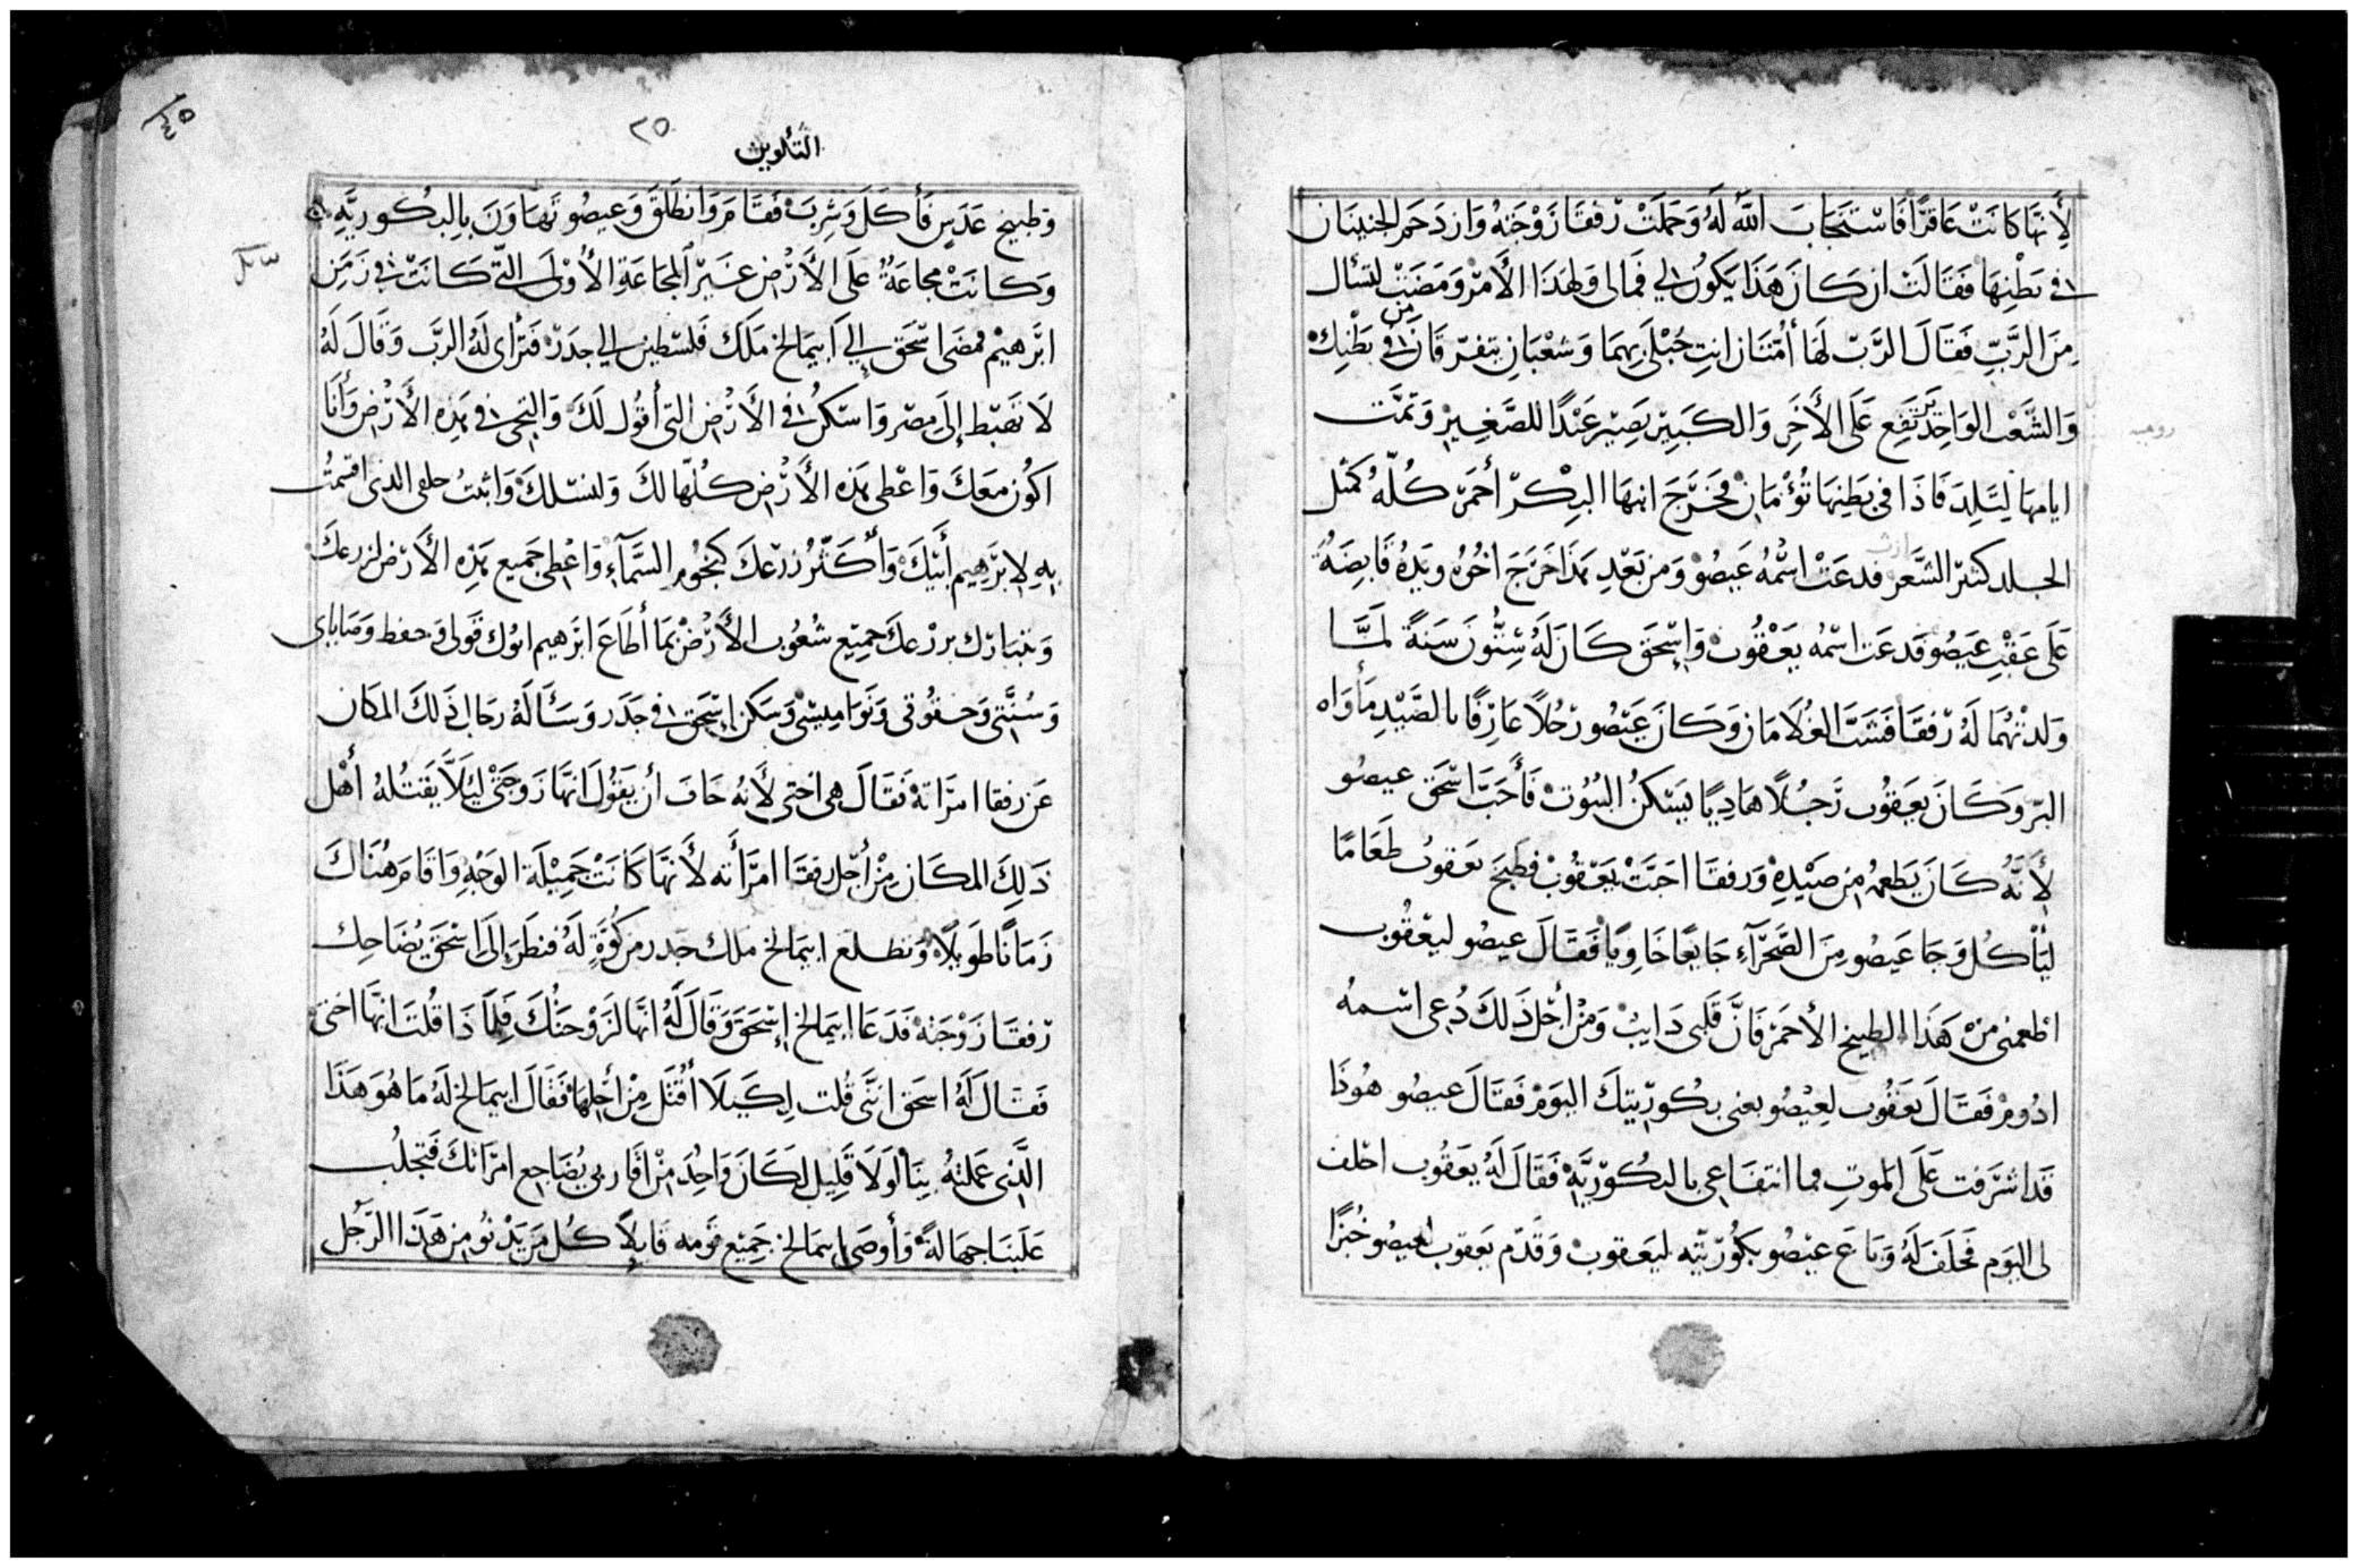 لِأَنَّهَا كَانَتْ عَاقِرًا فَاسْتَجَابَ اللَّهُ لَهُ وَحَمَلَتْ رفقَا زَوْجَتهُ وَازدَحَمَ الجنينَان
في بَطْنِهَا فَقَالَتْ ان كَانَ هَذَا يَكُونُ لي فَمَا لى وَلهَذَا الأَمْر وَمَضَتْ لتسأل
مِنَ الرَّبِّ فَقَالَ الرَّبّ لَهَا أمَّتَان انتِ حُبْلَى بِهِمَا وَشعْبَانِ يتفرّقَان مِن في بَطْنِك
وَالشَّعْب الوَاحِد يَرتَفِع عَلَى الأَخَرِ وَالكَبِيرْ يَصِيْر عَبْدًا للصَّغِيرْ وَتمَّت
ايامهَا لِتَلِدَ فَاذَا فى بَطنِهَا تُؤمَان فخَرَجَ ابنهَا البِكْر أحمَرْ كُلّهُ كمثل
الجلد كثير الشَّعر فدعَتْ اسْمُهُ عَيصُو وَمن بَعْدِ هَذَا خَرَجَ اخُوُه ويَدهُ قَابِضَهُ
عَلَى عَقْبِ عَيصُو فَدعَت اسْمُه يَعْقُوب وَإسْحَق كَانَ لَهُ سِتُّونَ سَنَةً لمَّا
وَلدتْهُمَا لَهُ رفقَا فشَبَّ الغُلَامَان وَكَانَ عَيصُو رَجُلاً عَارِفًا بالصَّيْدِ مَأوَاه
البرّ وَكَانَ يَعَقُوب رَجُلًا هَادِيًا يَسْكنُ البيُوت فَأَحَبَّ اسْحَق عيصُو
لِأَنَّهُ كَانَ يَطعمهُ مِن صَيْدِهِ وَرفقَا احَبَّتْ يَعَقُوبْ فطَبخَ يعَقوبُ طَعَامًا
ليَأكُل وَجَا عَيصُو مِنَ الصَّحَرَآءِ جَايعًا خَاوِيًا فَقَالَ عيصُو ليَعْقُوب
اطعمنى مِنْ هَذَا الطبيخ الأحمَر فَانَّ قَلبى دَايبْ وَمْن أجْل ذَلكَ دُعى اسْمهُ
ادُوم فَقَالَ يَعَقُوب لِعيْصُو بعنى بكُورّيتِكَ اليَوْم فَقَالَ عيصُو هُوذَا
قَد اشرَفت عَلَى الموتِ فما انتفَاعِى بالبكُورّيَّةِ فَقَالَ لَهُ يعَقُوب احْلف
لى اليَوَم فحَلَفَ لَهُ وَبَاعَ عيْصُو بكوُرّيّته ليَعقوب وَقَدّم يَعقوب لعيصُو خُبزًا
التّكوين
٢٥
وَطبيخ عَدَسٍ فَأكَلَ وَشرِبَ فَقَامَ وَانطَلَقَ وَعيصُو تَهَاوَنَ بِالبكُوريَّهِ
وَكانَتْ مجَاعَةٌ عَلَى الأَرْض غَيْر المَجَاعَةِ الأوْلَى التّى كَانَتْ في زَمَن
ابْرَهيْم فمضَى اسْحَق إلى أبيمَالخ مَلَك فَلسْطين إلي جدَرْ فَترأى لَهُ الرَبّ وَقَالَ لَهُ
لَا تَهَبْط إلَى مِصْر وَاسْكنُ في الأَرْض التى أقُول لَكَ وَالتجى في هَذِه الأَرْضِ وَأَنَا
اكُون معَكَ وَاعْطى هَذِه الأَرْض كُلّهَا لكَ وَلنسْلكَ وَاثبتُ حلفى الذى اقسَمْتُ
بِهِ لابْرَهِيم أَبيْكَ وَأكَثّرُ زرعَكَ كَنجُوْمِ السَّمَآءِ وَاعْطِى جَميع هَذِه الأَرْض لزرعكَ
وَيتبَارَك بزرْعكَ جميْع شُعُوب الأَرْض بمَا أطَاعَ ابرَهيم ابُوك قَولى وَحفظ وَصَايَاى
وَسُنَّتى وَحقُوقى وَنَوَاميسْى وَسَكَن إسْحَق في جَدَر وَسَئَالَهُ رجَال ذَلكَ المكَان
عَن رفقا امرَاتهُ فَقَالَ هِى اختى لأَنهُ خَافَ أن يَقُولَ انهَّا زَوجَتْى ليَلَّا يَقتُلهُ أهْل
ذَلِكَ المكَان مِنْ أجْل رفقَا امرَأته لأَنهَّا كَانَتْ جَميْلَة الوَجْهِ وَاقَامَ هُنَاكَ
زَمَانًا طَويْلاً وَتطلع ابيمَالخ ملك جدر من كُوَّةٍ لَهُ فنظَرَ إلَى اسْحَقَ يُضَاحِك
رفقَا زَوْجَتهُ فَدَعَا ابيمَالخ إسْحَقَ وَقَالَ لَهُ انهَّا لزَوْجتُكَ فَلِمَاذَا قُلتَ انهَّا اختى
فَقَالَ لَهُ اسحَق اننَّى قُلت لِكَيلَا أُقْتَل مِنْ أجْلهَا فَقَالَ ابيمَالخ لَهُ مَا هُوَ هَذَا
الَّذِى عَملتهُ بِنَا لَولَا قَلِيْل لكَانَ وَاحُدَ منْ اقَاربى يُضَاجِع امرَاتكَ فَتجلُب
عَلَينَا جهَالةً وَأَوصَى ابيمَالخ جَميْع قَومه قَايلاً كُل مَن يَدْنُو مِن هَذَا الرَّجُل